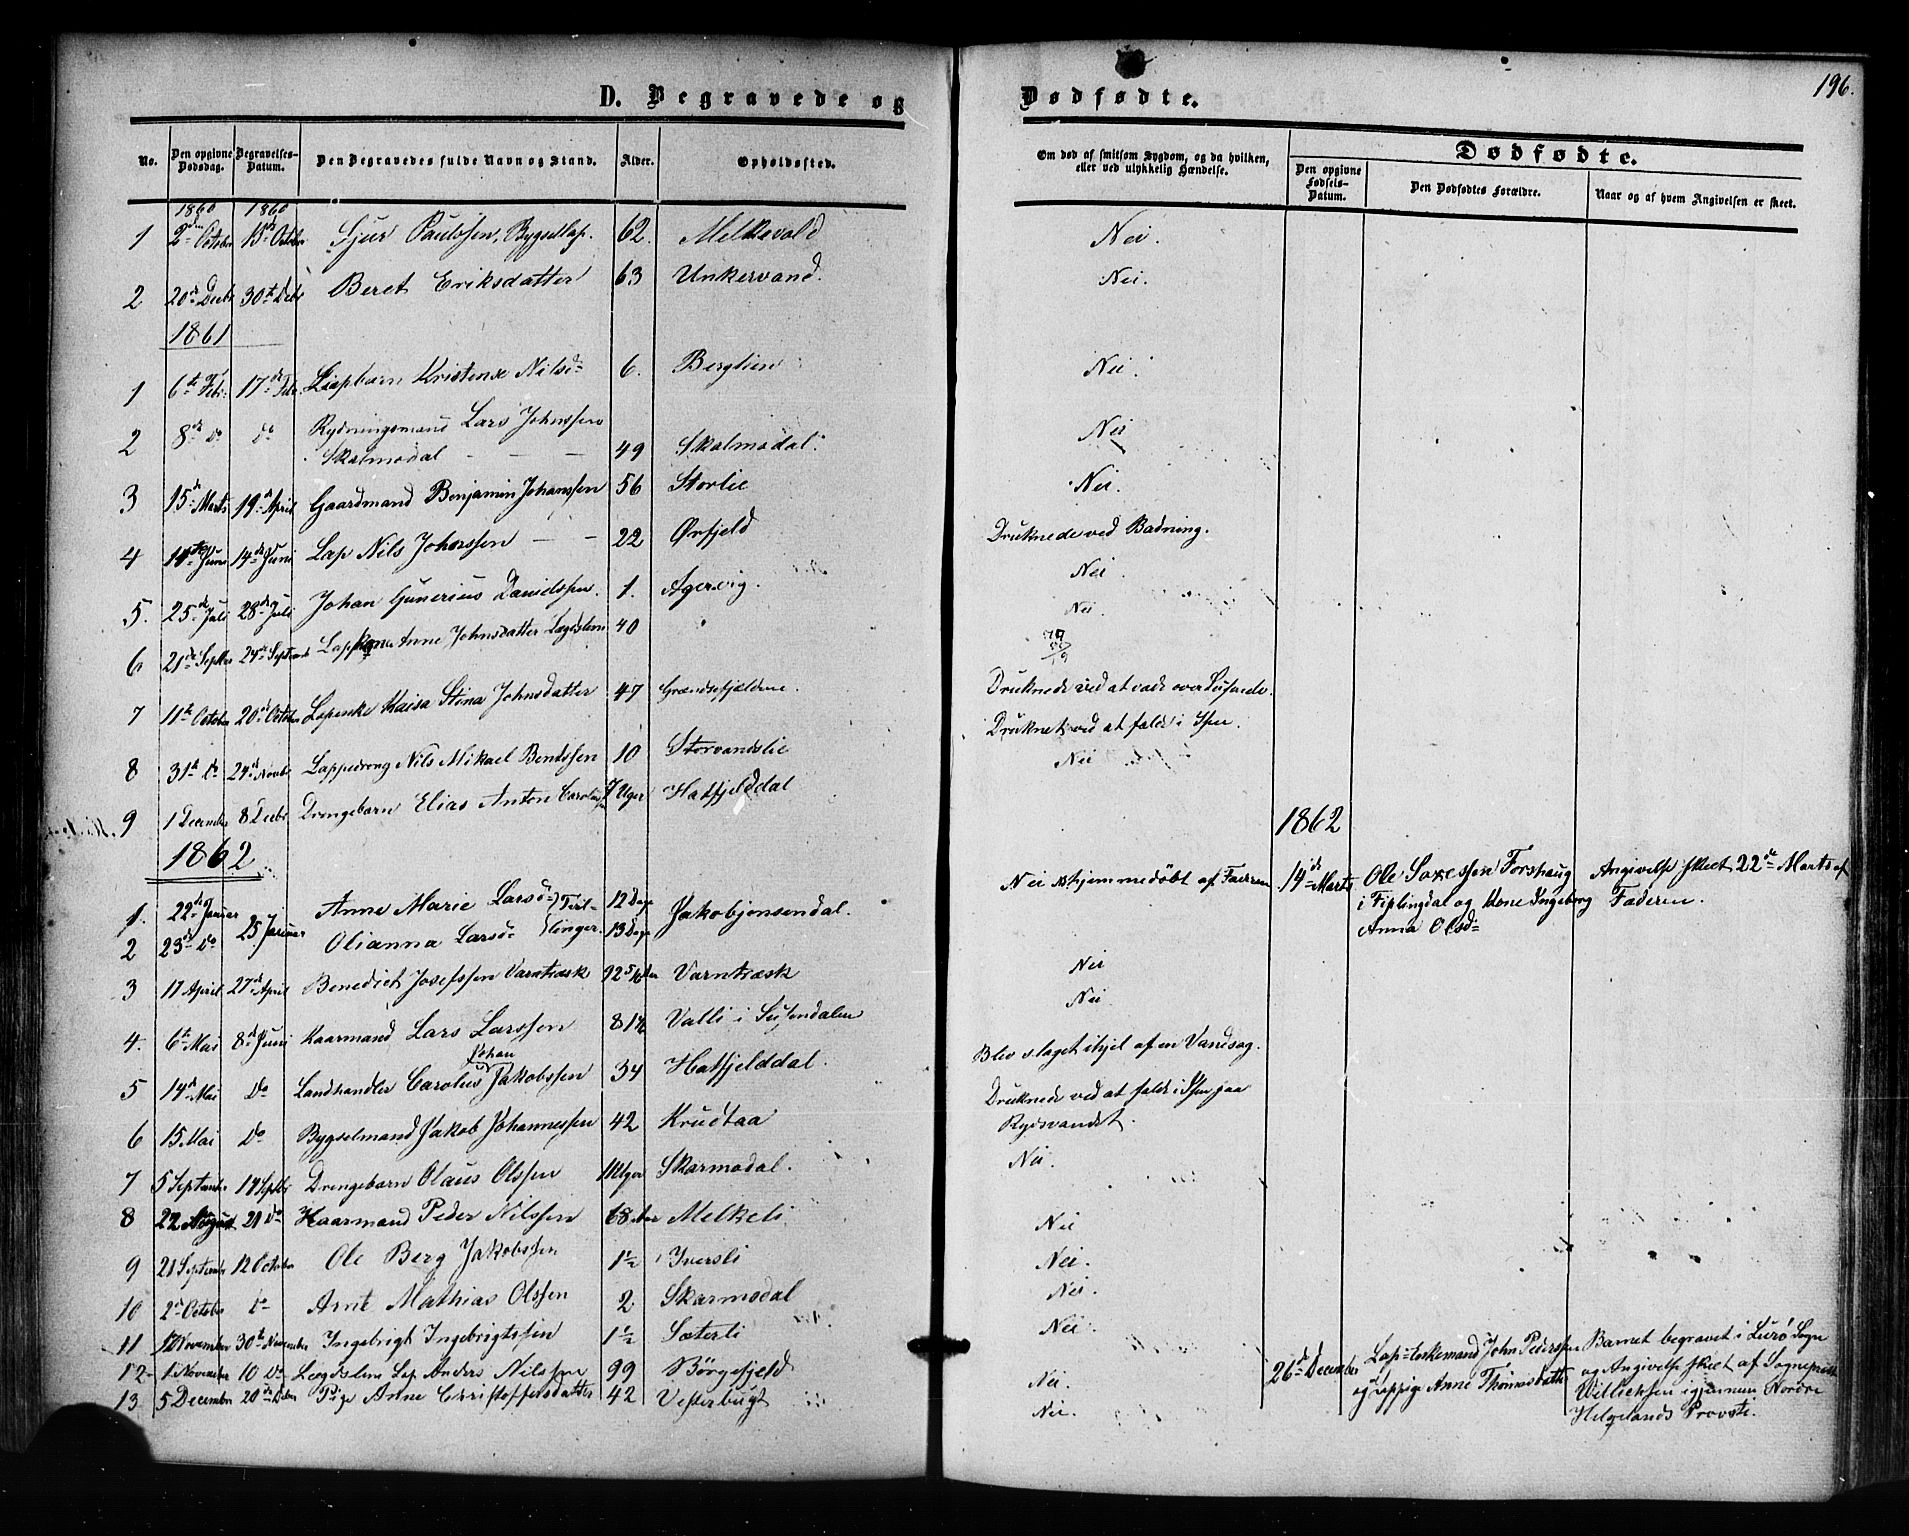 196.
D. Begravede og Dødfødte.
No.
Den opgivne Dødsdag.
Begravelses-Datum.
Den Begravedes fulde Navn og Stand.
Alder.
Opholdssted.
Om død af smitsom Sygdom, og da hvilken, eller ved ulykkelig Hændelse.
Dødfødte.
Den opgivne Fødsels-Datum.
Den Dødfødtes Forældre.
Naar og af hvem Angivelsen er skeet.
1860 1860
1 2den October 15de October Sjur Paulssen, Bygsellap. 62. Melkevold Nei.
2 20de Decbr 30te Decbr Beret Eriksdatter 63 Unkervand. Nei.
1861
1 6te Febr. 17de Febr. Lapbarn Kristense Nilsd= 6. Berglien Nei.
2 8de Do Do Rydningsmand Lars Johnssen
Skalmodal — — — 49 Skalmodal. Nei
3 15de Marts 19de April Gaardmand Benjamin Johanssen 56 Storlie Nei.
4 Juni 14de Juni Lap Nils Johnssen — — 22 Ørfjeld Druknede ved Badning.
5. 25de Juli 28de Juli Johan Gunerius Danielssen. 1. Agervig. Nei.
6 21de Septbr 24de Septemb Lappkone Anne Johnsdatter Lægdslem 40 Nei.
7 11te October 20de October Lapenke Kaisa Stina Johnsdatter 47 Grændsefjeldene. Druknede ved at vade over Susnede.
8 31te Do 24de Novbr Lappedreng Nils Mikael Bendssen 10 Storvandslie Druknet ved at falde i Isen.
9 1 December 8 Decbr Drengebarn Elias Anton 7 Uger Hatfjelddal Nei
1862 1862
1. 22de Januar 25 Januar Anne Marie Larsd= } Tvil- 12 Dage Jakobjonsendal. Nei hjemmedøbt af Faderen
2 23de Do Olianna Larsd= } linger. 13 Dage
14de Marts Ole Forshaug
i Fiplingdal og Kone Ingeborg
Anna Olsd=
Angivelse skeet 22de Marts af
Faderen.
3 17 April 27de April Benedict Josefssen Varntræsk 92 Varntræsk Nei
4. 6te Mai 8de Juni Kaarmand Lars Larssen 81 Valli i Susendalen Nei.
Johan
5 14de Mai Do Landhandler Carolus Jakobssen 34 Hatfjelddal. Blev slaget ihjel af en Vandsag.
6 15 Mai Do Bygselmand Jakob Johannessen 42 Krudtaa Druknede ved at falde i Isen paa
Rydsvandet.
7 5 September 14 Septbr Drengebarn Olaus Olssen Uger Skarmodal. Nei
8 22 August 21 Do Kaarmand Peder Nilssen 68 Aar Melkeli Nei
9 21 September 12 October Ole Berg Jakobssen 1½ Iversli Nei.
10 2den October Do Arnt Mathias Olssen 2 Skarmodal Nei.
11 November 30te November Ingebrigt Ingebrigtssen 1½ Sæterli Nei
12 1 November 10 Do Lægdslem Lap Anders Nilssen 99 Børgefjeld Nei.
13 5 December 20de Decbr Pige Anne Christoffersdatter 42 Vesterbugt Nei.
26de December Lap=Enkemand John Pederssen
og Lappige Anne Thomasdatter
Barnet begravet i Lurø Sogn
og Angivelse skeet af Sogneprest
Willichsen igjennem Nordre
Helgelands Provsti.